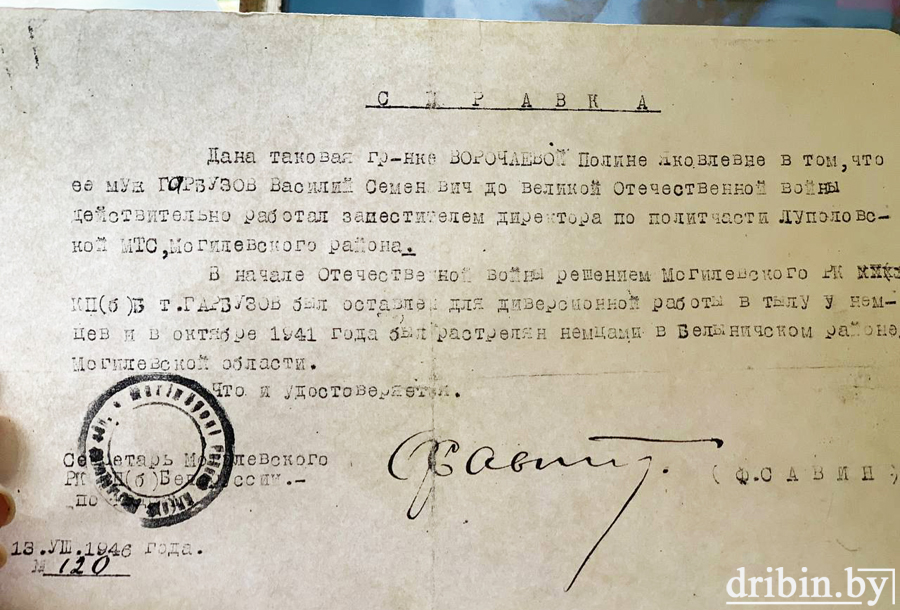 СПРАВКА
Дана таковая гр-нке ВОРОЧАЕВОЙ Полине Яковлевне в том, что
ее муж ГАРБУЗОВ Василий Семенович до великой Отечественной войны
действительно работал заместителем директора по политчасти Луполовс-
кой МТС, Могилевского района.
В начале Отечественной войны решением Могилевского РК
КП(б)Б т. ГАРБУЗОВ был оставлен для диверсионной работы в тылу у нем-
цев и в октябре 1941 года был растрелян немцами в Белыничском районе,
Могилевской области.
Что и удостоверяется.
Секретарь Могилевского
РК КП(б) Белоруссии.-
по
(Ф.САВИН)
13.УШ.1946 года.
№ 120
dribin.by